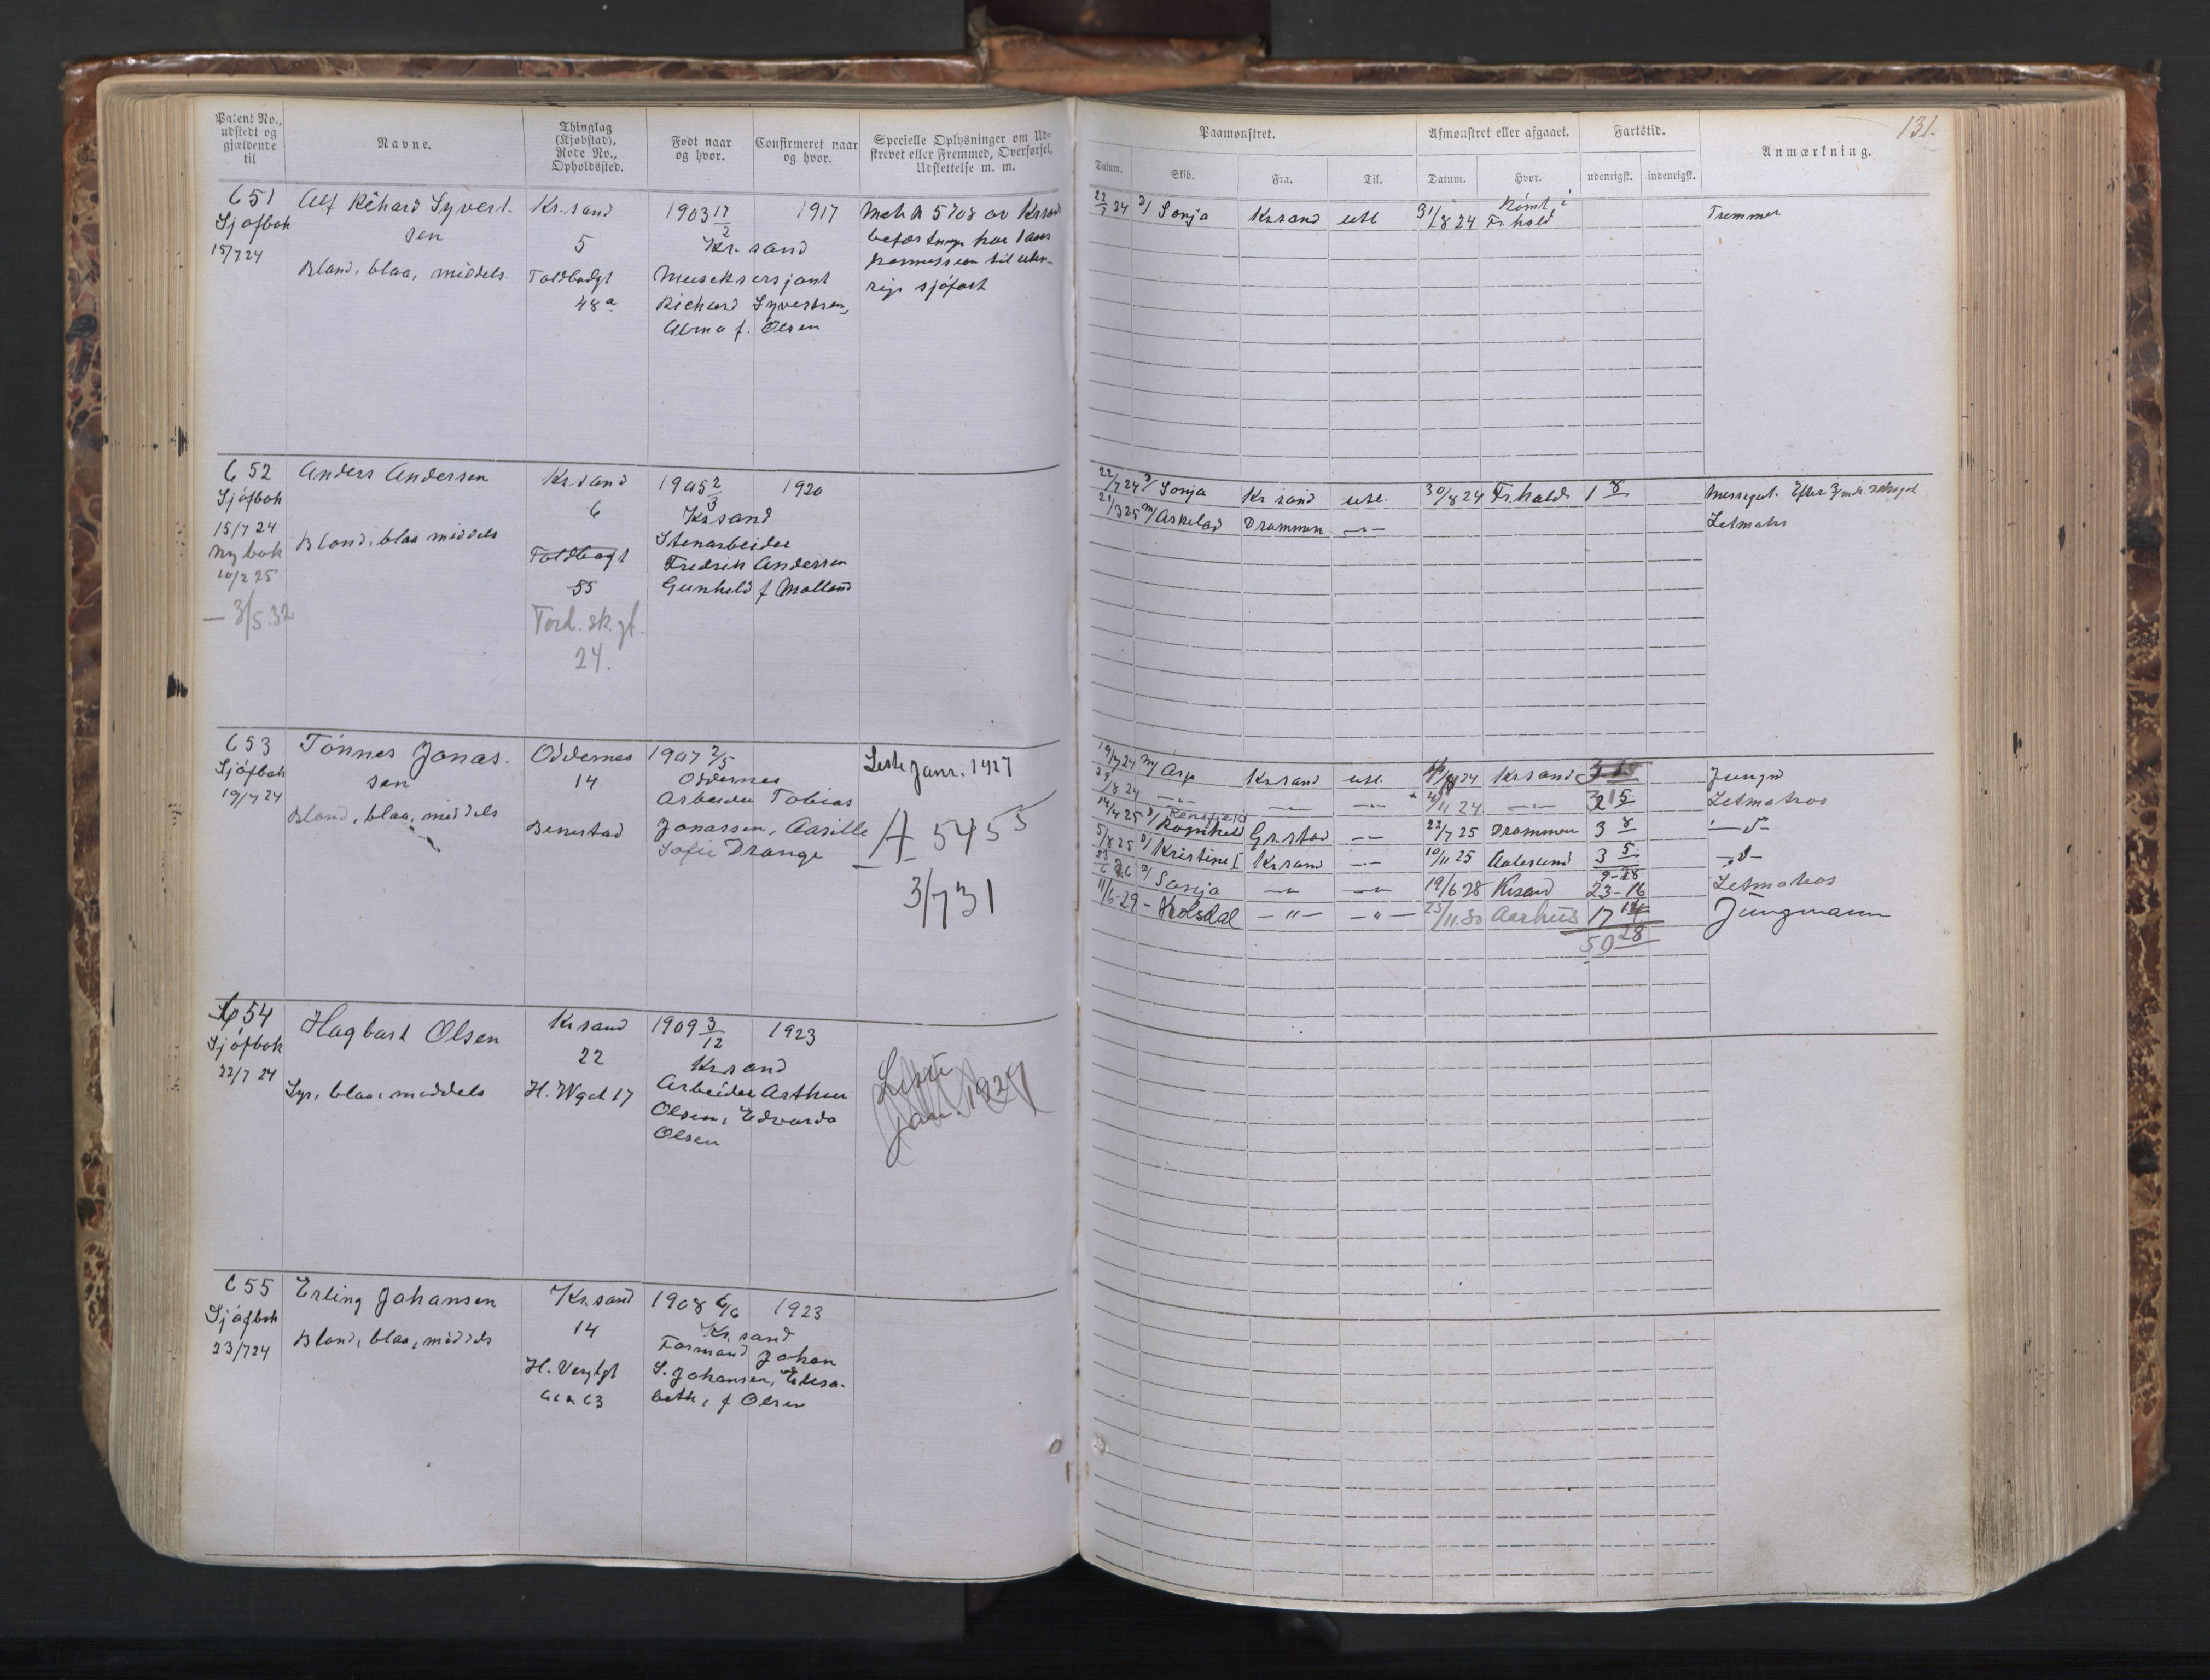 Patent No.,
udstedt og
gjældende
til
Navne.
Thinglag
(Kjøbstad),
Rode No.,
Opholdssted.
Født naar
og hvor.
Confirmeret naar
og hvor.
Specielle Oplysninger om Ud-
skrevet eller Fremmed, Overførsel,
Udslettelse m. m.
651
Sjófbok
15/7 24
Alf Richard Syvert-
sen
Blond, blaa, middels
Kr.sand
5
Toldbodgt
48a
1903 17/2
Kr. sand
Richard Syvertsen,
Alma f. Olsen
1917
5708 av Kr.sand
til uten-
rigs sjófart
652
Sjófbok
15/7 24
Ny bok
10/2 25
— 3/5.32
Anders Andersen
Blond, blaa middels
Kr.sand
6
Toldbogt
55
Tord. sk. gt.
24.
1905 2/3
Kr.sand
Stenarbeider
Fredrik Andersen
Gunhild f Molland
1920
653
Sjófbok
19/7 24
Tónnes Jonas-
sen
Blond, blaa, middels
Oddernes
14
Benestad
1907 2/5
Oddernes
Arbeider Tobias
Jonassen, Aasille
Sofie Drange
Liste Janr. 1927
A 5455
3/7 31
654
Sjófbok
22/7 24
Hagbart Olsen
Lys, blaa, middels
Kr.sand
22
H. Wgt 17
1909 3/12
Kr.sand
Arbeider Arthur
Olsen, Edvarda
Olsen
1923
Liste
Jan. 1927
655
Sjófbok
23/7 24
Erling Johansen
Blond, blaa, middels
Kr.sand
14
H. Vergtgt
1908 6/6
Kr.sand
Formand Johan
S. Johansen, Elisa-
beth, f Olsen
1923
131.
Paamønstret.
Afmønstret eller afgaaet.
Fartstid.
Anmærkning.
Datum.
Skib.
Fra.
Til.
Datum.
Hvor.
udenrigsk.
indenrigsk.
22/7 24 D/ Sonja Kr.sand utl 31/8 24 Rómt i
Fr.hald Tremmer
22/7 24 D/ Sonja Kr.sand utl. 30/8 24 Fr.hald 1 8 Messegut.
21/3 25 M/ Askelad Drammen —"— Letmatr
19/7 24 M/ Kr.sand utl. Kr.sand Jungm
/8 24 —"— —"— —"— /11 24 —"— 2 15 Letmatros
14/4 25 D/ Gr.stad —"— 22/7 25 Drammen 3 8 —d—
5/8 25 D/ Kristine I Kr.sand —"— 10/11 25 Aalesund 3 5 —d—
9-28
23/6 26 D/ Sonja —"— —"— 19/6 28 Kr.sand 23-16 Letmatros
11/6-29 - Kolsdal —"— —"— 25/11.30 Aarhus 17 14 Jungmann
50 28